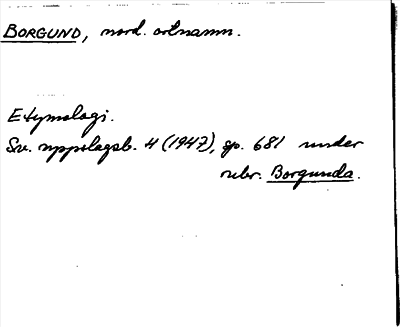 BORGUND, nord. ortnamn.
Etymologi.
Sv. uppslagsb. 4 (1947), sp. 681 under
rubr. Borgunda.